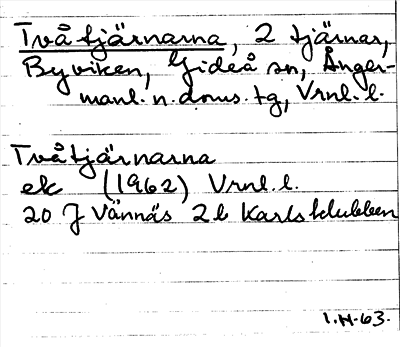 Två tjärnarna, 2 tjärnar,
Byviken, Gideå sn, Ånger-
manl. n. doms. tg, Vrnl. l.
Två tjärnarna
ek (1962) Vrnl. l.
20 J Vännäs 2 b Karlsklubben
I.H.63.